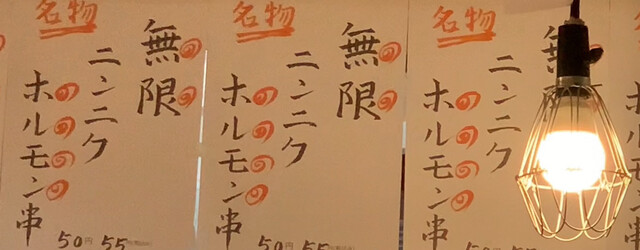 名物
無限
ニンニク
ホルモン串
50円 55
名物
無限
ニンニク
ホルモン串
50円 55
名物
無
ニンニク
ホルモン串